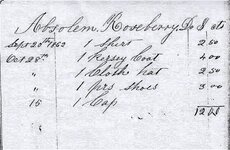 Absolem Roseberry Do $ cts
Sept 20th 1862 1 Shirt 2 50
Oct 28th 1 Kersey Coat 4 00
" 1 Cloth hat 2 50
" 1 prs shoes 3 00
15 1 Cap